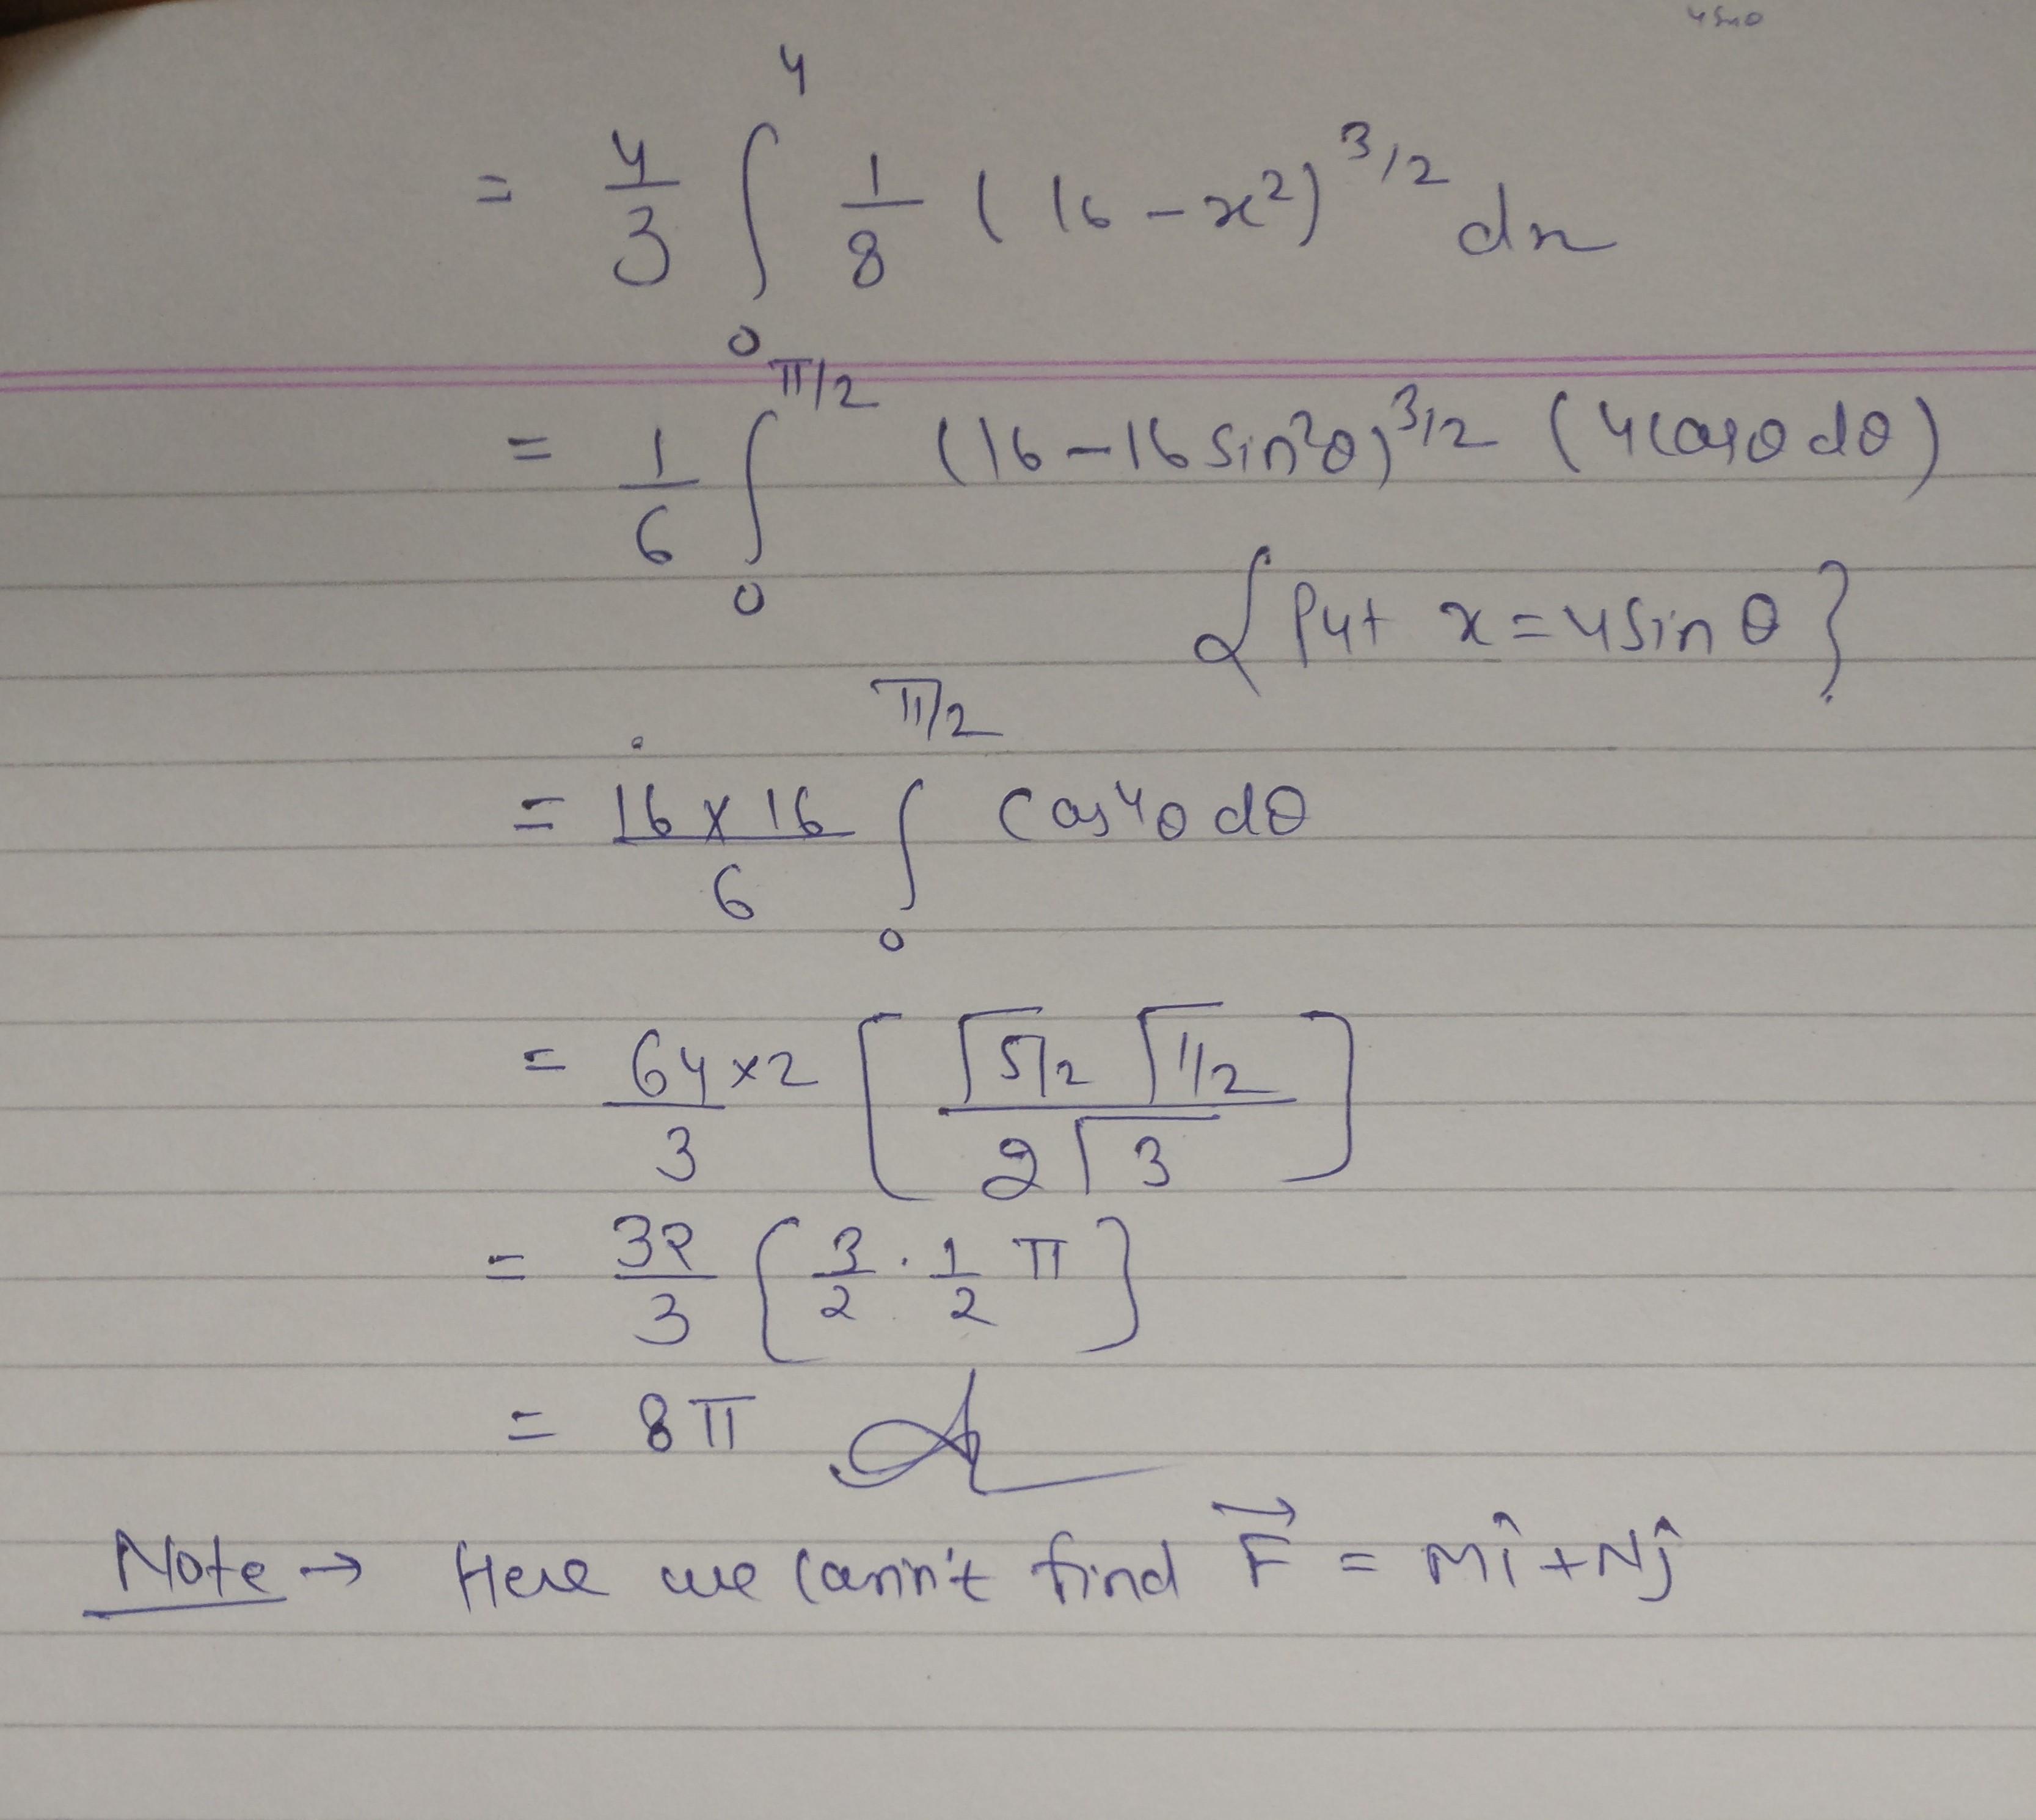 4sinθ
= 4/3 ∫₀⁴ 1/8 (16 - x²)^3/2 dx
= 1/6 ∫₀^π/2 (16 - 16 sin²θ)^3/2 (4 cosθ dθ)
{Put x = 4 sin θ}
= 16 × 16 / 6 ∫₀^π/2 cos⁴θ dθ
= 64 × 2 / 3 [ Γ5/2 Γ1/2 / 2 Γ3 ]
= 32/3 { 3/2 . 1/2 π }
= 8π
Note → Here we cann't find F⃗ = Mî + Nĵ